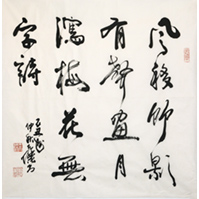 風移竹影
有聲畫月
濡梅花無
字詩